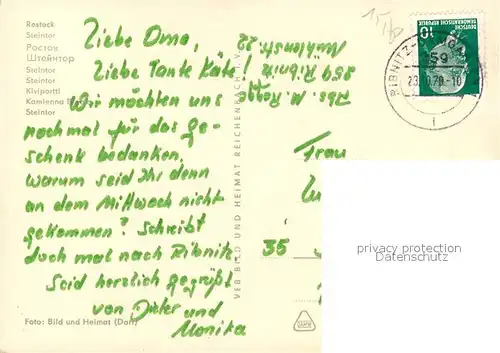 Rostock
Steintor
Steintor
Росток
Штейнтор
Steintor
Steintor
Kiviportti
Kamienna
Steintor
Liebe Oma,
Liebe Tante Käte!
Wir möchten uns
nochmal für das ge-
schenk bedanken,
warum seid ihr denn
an dem Mittwoch nicht
gekommen? Schreibt
doch mal nach Ribnitz
Seid herzlich gegrüßt
von Dieter und
Monika
Foto: Bild und Heimat (Dorf)
VEB BILD UND HEIMAT REICHENBACH I. V.
Abs. M.
259 Ribnitz
22
15
DEUTSCHE
DEMOKRATISCHE REPUBLIK
10
RIBNITZ-
259
Frau
35
privacy protection
Datenschutz